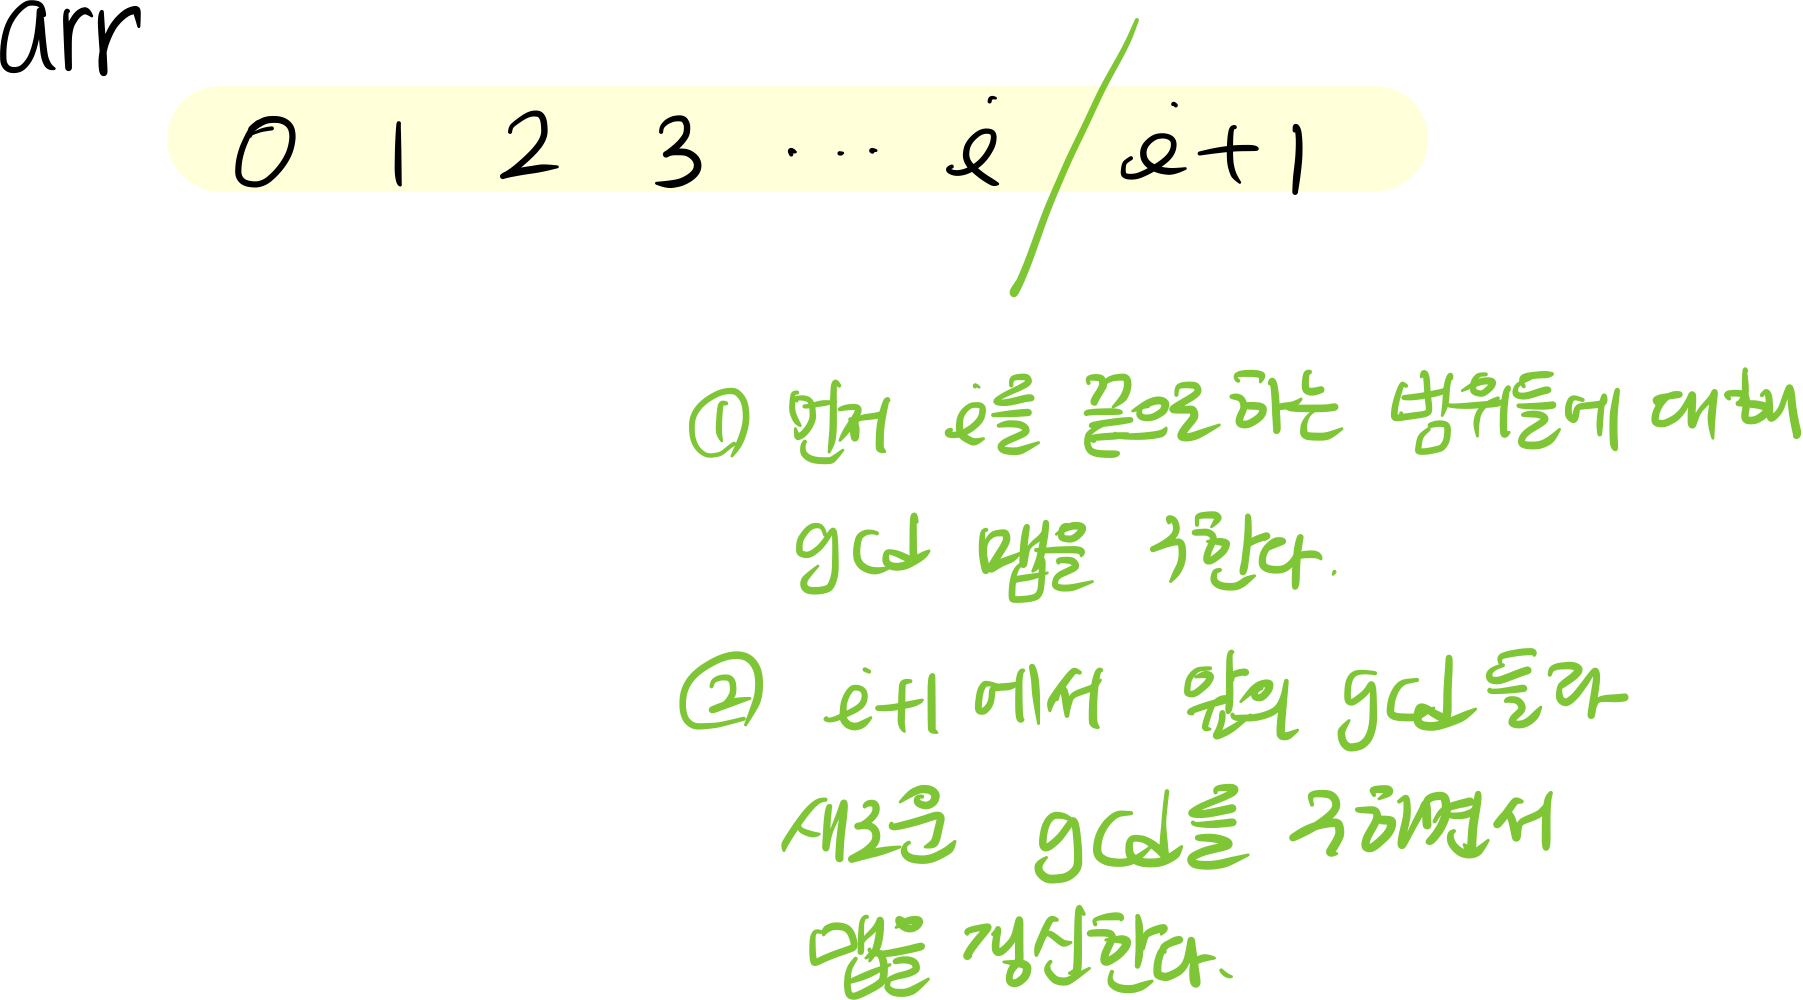 arr
0 1 2 3 ... i / i+1
① 먼저 i를 끝으로 하는 범위들에 대해
gcd 맵을 구한다.
② i+1 에서 앞의 gcd 들과
새로운 gcd를 구하면서
맵을 갱신한다.